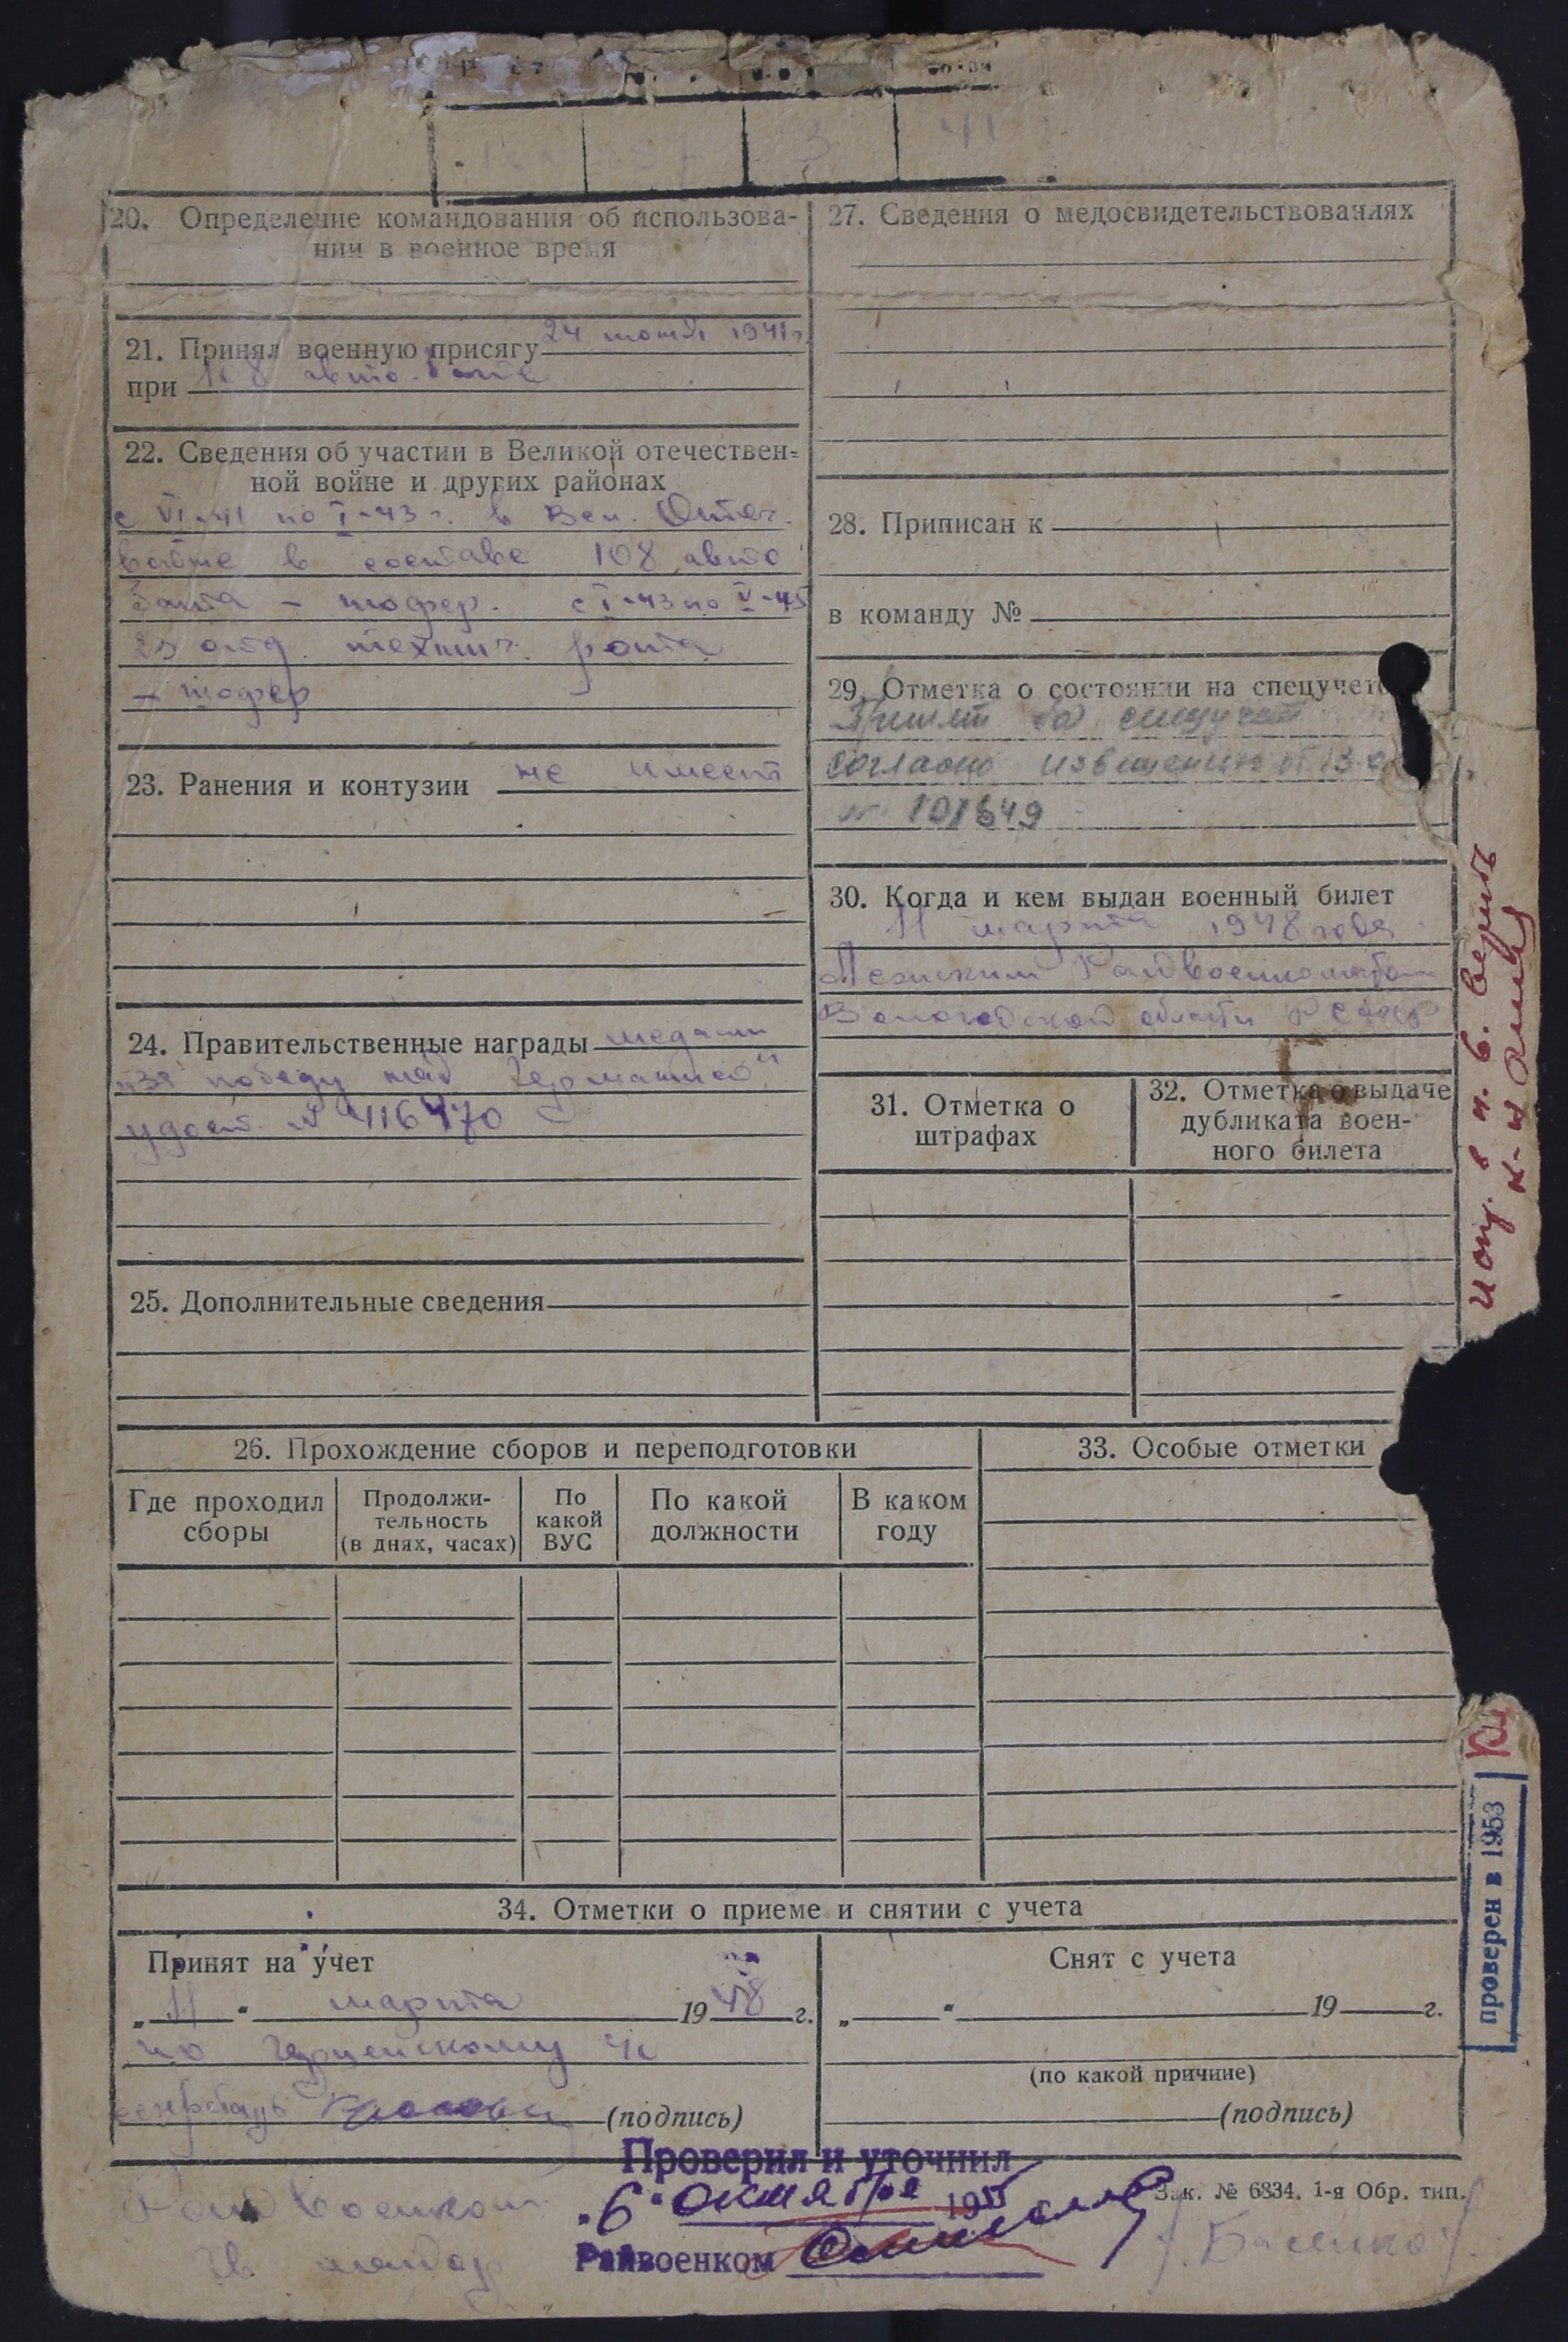 3 41
20. Определение командования об использова-
нии в военное время
21. Принял военную присягу 24 июня 1941г.
при 108 авто. бате
22. Сведения об участии в Великой отечествен-
ной войне и других районах
с VI-41 по I-43 г. в Вел. Отеч.
войне в составе 108 авто
бата - шофер. с I-43 по V-45
25 отд. технич. рота
- шофер
23. Ранения и контузии не имеет
24. Правительственные награды медаль
"За победу над Германией"
удост. №
25. Дополнительные сведения
27. Сведения о медосвидетельствованиях
28. Приписан к
в команду №
29. Отметка о состоянии на спецучете
Принят на спецучет
согласно извещению от 13
№ 101649
30. Когда и кем выдан военный билет
11 марта 1948 года
Райвоенкоматом
Вологодской области РСФСР
31. Отметка о
штрафах
32. Отметка о выдаче
дубликата воен-
ного билета
26. Прохождение сборов и переподготовки
Где проходил
сборы
Продолжи-
тельность
(в днях, часах)
По
какой
ВУС
По какой
должности
В каком
году
33. Особые отметки
34. Отметки о приеме и снятии с учета
Принят на учет
„11“ марта 1948 г.
по
секретарь (подпись)
Снят с учета
„ “ 19 г.
(по какой причине)
(подпись)
Проверил и уточнил
"6" октября 195
Райвоенком
Зак. № 6834. 1-я Обр. тип.
Райвоенком
Гв. майор
Испр. в ч. 6. верить
проверен в 1953